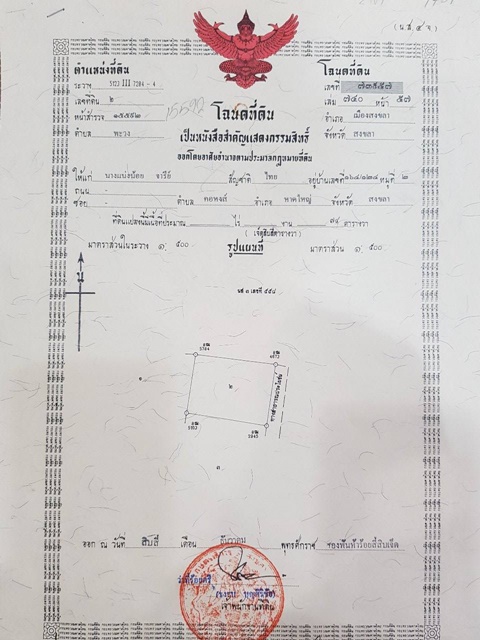 (น.ส.๔ จ)
ตำแหน่งที่ดิน
ระวาง 5122 III 7204 - 4
เลขที่ดิน ๒
หน้าสำรวจ ๑๕๕๙๒
ตำบล พะวง
15592
โฉนดที่ดิน
เลขที่ ๗๓๕๕๗
เล่ม ๗๔๐ หน้า ๕๗
อำเภอ เมืองสงขลา
จังหวัด สงขลา
โฉนดที่ดิน
เป็นหนังสือสำคัญแสดงกรรมสิทธิ์
ออกโดยอาศัยอำนาจตามประมวลกฎหมายที่ดิน
ให้แก่ นางแน่งน้อย จารีย์ สัญชาติ ไทย อยู่บ้านเลขที่ ๑๖๔/๑๒๔ หมู่ที่ ๒
ถนน -
ซอย - ตำบล คอหงส์ อำเภอ หาดใหญ่ จังหวัด สงขลา
ที่ดินแปลงนี้มีเนื้อที่ประมาณ - ไร่ - งาน ๗๔ ตารางวา
(เจ็ดสิบสี่ตารางวา)
มาตราส่วนในระวาง ๑: ๕๐๐
รูปแผนที่
มาตราส่วน ๑: ๕๐๐
น
นส ๓ เลขที่ ๕๕๘
๑
๒
๓
ออก ณ วันที่ สิบสี่ เดือน ธันวาคม พุทธศักราช สองพันห้าร้อยสี่สิบเจ็ด
ว่าที่ร้อยตรี
เจ้าพนักงานที่ดิน